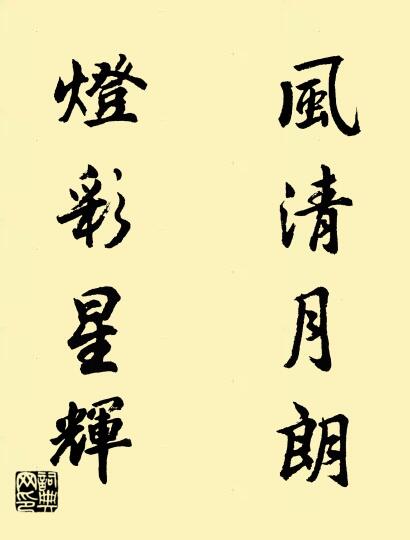 風清月朗
燈彩星輝
詞典网印